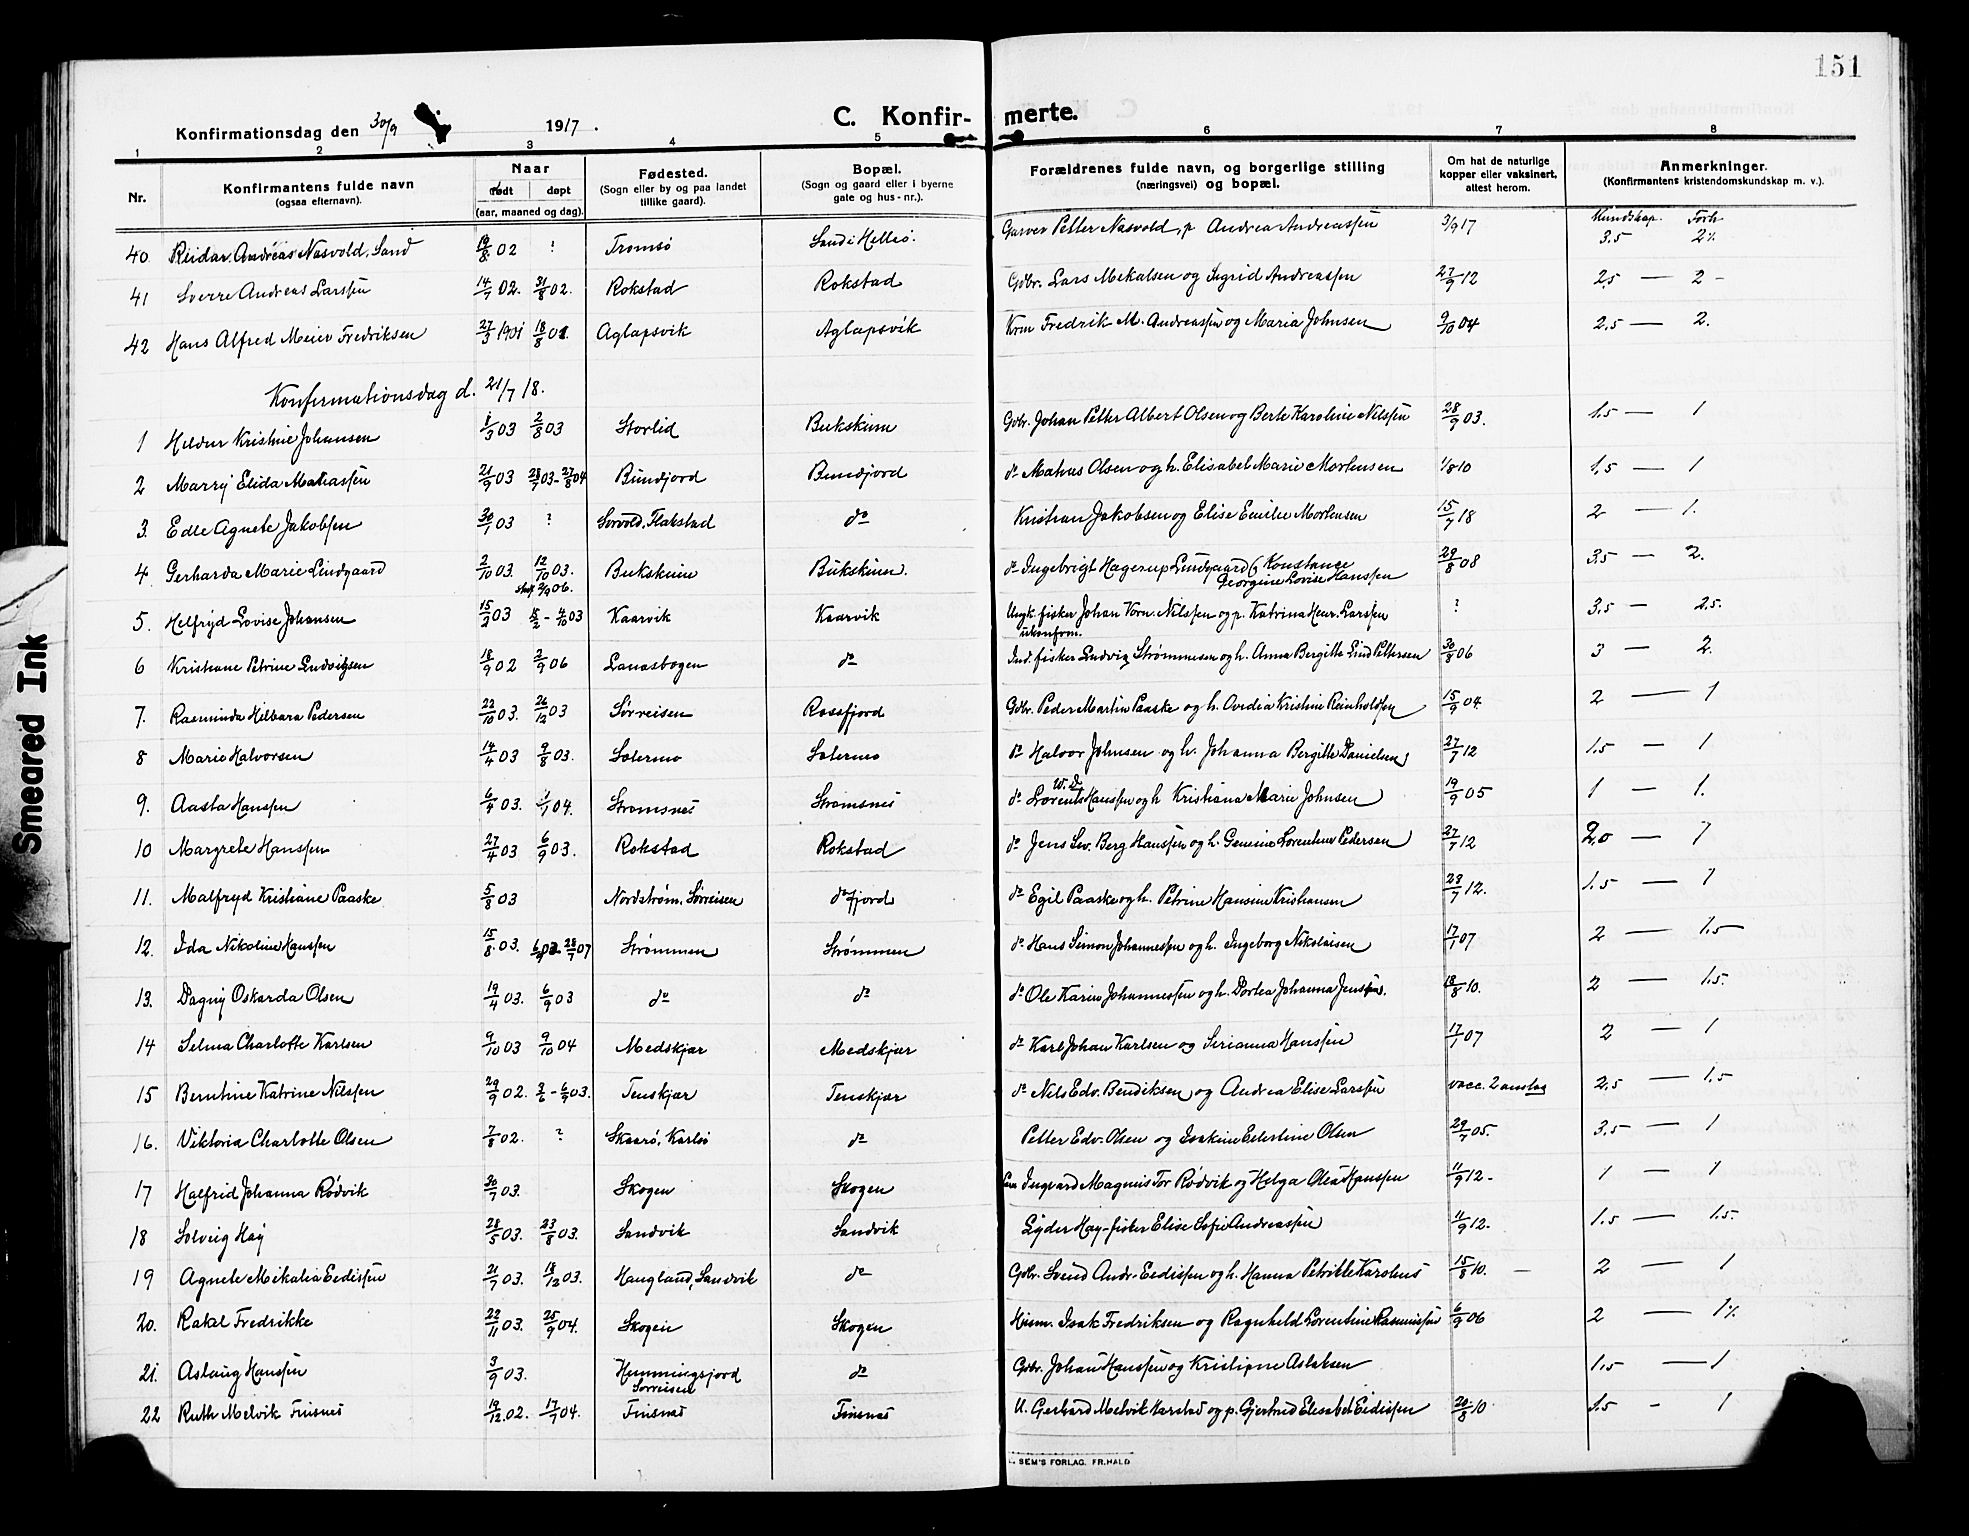 151
Konfirmationsdag den 30/9 1917. C. Konfir- merte.
1 2 3 4 5 6 7 8
Nr. Konfirmantens fulde navn (ogsaa efternavn). Naar født døpt (aar, maaned og dag). Fødested. (Sogn eller by og paa landet tillike gaard). Bopæl. (Sogn og gaard eller i byerne gate og hus-nr.). Forældrenes fulde navn, og borgerlige stilling (næringsvei) og bopæl. Om hat de naturlige kopper eller vaksinert, attest herom. Anmerkninger. (Konfirmantens kristendomskundskap m. v.).
Kundskap. Forh
40 Reidar Andreas Nasvold, Sand 19/8 02 ? Tromsö Sand i Hellsö. Garver Petter Nasvold, p Andrea Andreassen 3/9 17 3.5 2½
41 Sverre Andreas Larssen 14/7 02. 31/8 02. Rokstad Rokstad Gdbr. Lars Mekalsen og Sigrid Andreassen 27/9 12 2,5 — 2 -
42 Hans Alfred Meier Fredriksen 27/3 1901 18/8 01. Aglapsvik Aglapsvik Krm Fredrik M. Andreassen og Maria Johnsen 9/10 04 2.5 — 2.
Konfirmationsdag d. 21/7 18.
1 Heldur Kristine Johansen 1/3 03 2/8 03 Storlid Bukskinn Gdbr. Johan Petter Albert Olsen og Berte Karoline Nilssen 28/9 03. 1.5 — 1
2 Marry Elida Matiassen 21/9 03 28/7 03 - 27/8 04 Bundjord Bundjord do Matias Olsen og h. Elisabet Marie Mortensen 1/8 10 1,5 — 1
3. Edle Agnete Jakobsen 30/1 03 ? Sørvold, Flakstad do Kristian Jakobsen og Elise Emilie Mortensen 15/7 18 2 — 1.
4. Gerharda Marie Lindgaard 2/10 03. 12/10 03. 2/9 06. Bukskinn Bukskinn. do Ingebrigt Hagerup Lindgaard og Konstance Georgine Lovise Hanssen 29/8 08 3.5 — 2.
5. Helfryd Lovise Johansen 15/2 03 - 4/10 03 Kaarvik Kaarvik Ungk. fisker Johan Korn. Nilssen og p. Katrina Henr. Larssen ukonfirm. ? 3,5 — 2.5.
6 Kristiane Petrine Ludvigsen 18/9 02 2/9 06 Lanasbogen do Ind. fisker Ludvig Strømmesen og h. Anna Bergitte Lind Pettersen 30/8 06 3 — 2.
7. Rasminda Hilbara Pedersen 22/10 03. 26/12 03 Sørreisen Rossfjord Gdbr. Peder Martin Paaske og h. Ovedia Kristine Reinholdsen 15/9 04. 2 — 1
8 Marie Halvorsen 14/4 03 9/8 03. Solermo Solermo do Halvor Johnsen og h. Johanna Bergitte Danielsen 27/7 12 1.5 — 1
9. Aasta Hanssen 6/4 03. 1/1 04. Strømsnes Strømsnes do Lorents Hanssen og h Kristiana Marie Johnsen 19/9 05 1 — 1.
10 Margrete Hanssen 27/4 03 6/9 03. Rokstad Rokstad do Jens Sev. Berg Hanssen og h. Gemine Lorentine Pedersen 27/7 12 2,0 — 1
11. Malfryd Kristiane Paaske 5/8 03 Nordstrøm, Sørreisen do fjord do Egil Paaske og h. Petrine Hansine Kristiansen 23/7 12. 1.5 — 1
12. Ida Nikoline Hanssen 15/8. 03. - 28/7 07 Strømmen Strømmen do Hans Simon Johannessen og h. Ingeborg Nikolaisen 17/1 07 2 — 1.5
13. Dagny Oskarda Olsen 19/4 03. 6/9 03 do do do Ole Karin Johannessen og h. Dortea Johanna Jenssen. 18/8 10. 2 — 1.5.
14 Selma Charlotte Karlsen 9/10 03 9/10 04 Medskjær Medskjær do Karl Johan Karlsen og Serianna Hanssen 17/1 07 2 — 1
15 Berntine Katrine Nilssen 29/9 02. 3/6 - 6/9 03. Tenskjær Tenskjær do Nils Edv. Bendiksen og Andrea Elise Larssen vacc. 2 anslag 2,5 — 1.5
16. Viktoria Charlotte Olsen 7/8 02. ? Skaarö, Karlsö do Petter Edv. Olsen og Isakine Celestine Olsen 29/7 05. 3.5 — 1
17 Halfrid Johanna Rödvik 30/7 03. Skogen Skogen Ingvard Magnus Tor Rödvik og Helga Olea Hanssen 11/9 12 - 1 — 1
18 Solveig Hay 28/5 03. 23/8 03. Sandvik Sandvik Lyder Hay - fisker Elise Sofie Andreassen 11/9 12. 1.5 — 1.5.
19 Agnete Mikalia Eedissen 21/7 03. 18/12 03. Haugland, Sandvik do Gdbr. Svend Andr. Eedissen og h. Hanna Petrikke Karolius 15/8 10. — 2 — 1
20. Rakel Fredrikke 22/11 03. 25/9 04. Skogen Skogen Husm. Isak Fredriksen og Ragnhild Lorentine Rasmussen 6/9 06 2 — 1½
21. Aslaug Hanssen 3/9 03. Hemmingsjord Sørreisen do Gdbr. Johan Hanssen og Kristine Aslaksen 1.5 — 1
22 Ruth Melvik Finsnes 19/12. 02. 17/7 04. Finsnes Finsnes U. Gerhard Melvik Harstad og p. Gjertrud Elesabet Eidissen 20/8 10 1.5 - 1
SEM'S FORLAG. FR.HALD
Smeared Ink